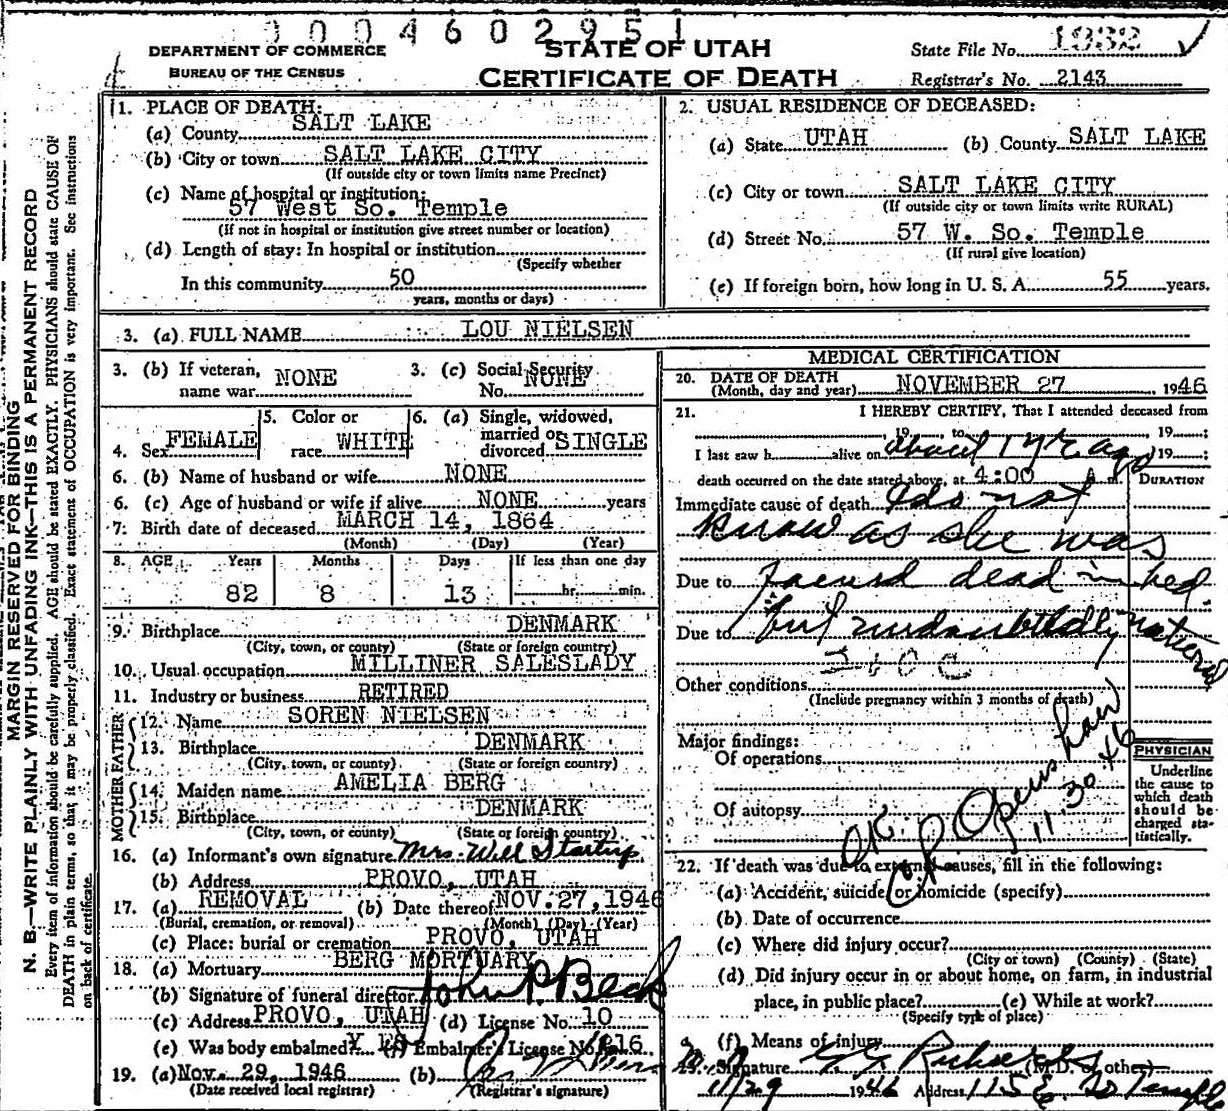 0004602951
DEPARTMENT OF COMMERCE
BUREAU OF THE CENSUS
STATE OF UTAH
CERTIFICATE OF DEATH
State File No. 1932
Registrar's No. 2143
MARGIN RESERVED FOR BINDING
N. B.—WRITE PLAINLY WITH UNFADING INK—THIS IS A PERMANENT RECORD
Every item of information should be carefully supplied. AGE should be stated EXACTLY. PHYSICIANS should state CAUSE OF
DEATH in plain terms, so that it may be properly classified. Exact statement of OCCUPATION is very important. See instructions
on back of certificate.
1. PLACE OF DEATH:
(a) County SALT LAKE
(b) City or town SALT LAKE CITY
(If outside city or town limits name Precinct)
(c) Name of hospital or institution:
57 West So. Temple
(If not in hospital or institution give street number or location)
(d) Length of stay: In hospital or institution
(Specify whether
In this community 50
years, months or days)
2. USUAL RESIDENCE OF DECEASED:
(a) State UTAH (b) County SALT LAKE
(c) City or town SALT LAKE CITY
(If outside city or town limits write RURAL)
(d) Street No. 57 W. So. Temple
(If rural give location)
(e) If foreign born, how long in U. S. A. 55 years.
3. (a) FULL NAME LOU NIELSEN
3. (b) If veteran, name war NONE 3. (c) Social Security No. NONE
4. Sex FEMALE 5. Color or race WHITE 6. (a) Single, widowed, married or divorced SINGLE
6. (b) Name of husband or wife NONE
6. (c) Age of husband or wife if alive NONE years
7. Birth date of deceased MARCH 14, 1864
(Month) (Day) (Year)
8. AGE Years Months Days If less than one day
82 8 13 hr. min.
9. Birthplace DENMARK
(City, town, or county) (State or foreign country)
10. Usual occupation MILLINER SALESLADY
11. Industry or business RETIRED
FATHER
12. Name SOREN NIELSEN
13. Birthplace DENMARK
(City, town, or county) (State or foreign country)
MOTHER
14. Maiden name AMELIA BERG
15. Birthplace DENMARK
(City, town, or county) (State or foreign country)
16. (a) Informant's own signature Mrs. Will Startup
(b) Address PROVO, UTAH
17. (a) REMOVAL (b) Date thereof NOV. 27, 1946
(Burial, cremation, or removal) (Month) (Day) (Year)
(c) Place: burial or cremation PROVO, UTAH
18. (a) Mortuary BERG MORTUARY
(b) Signature of funeral director John P. Beck
(c) Address PROVO, UTAH (d) License No. 10
(e) Was body embalmed? YES (f) Embalmer's License No. 216
19. (a) Nov. 29, 1946 (b)
(Date received local registrar) (Registrar's signature)
MEDICAL CERTIFICATION
20. DATE OF DEATH
(Month, day and year) NOVEMBER 27 1946
21. I HEREBY CERTIFY, That I attended deceased from
19 to 19 ;
I last saw h alive on about 1 yr ago 19 ;
death occurred on the date stated above, at 4:00 A M
DURATION
Immediate cause of death I do not
know as she was
Due to found dead in bed
Due to but undoubtedly natural
Other conditions
(Include pregnancy within 3 months of death)
Major findings:
Of operations
Of autopsy
OK. Openshaw
11 30 46
PHYSICIAN
Underline
the cause to
which death
should be
charged sta-
tistically.
22. If death was due to external causes, fill in the following:
(a) Accident, suicide or homicide (specify)
(b) Date of occurrence
(c) Where did injury occur?
(City or town) (County) (State)
(d) Did injury occur in or about home, on farm, in industrial
place, in public place? (e) While at work?
(Specify type of place)
(f) Means of injury
Signature G G Richards (M.D. or other)
11/29 1946 Address 115 E So Temple